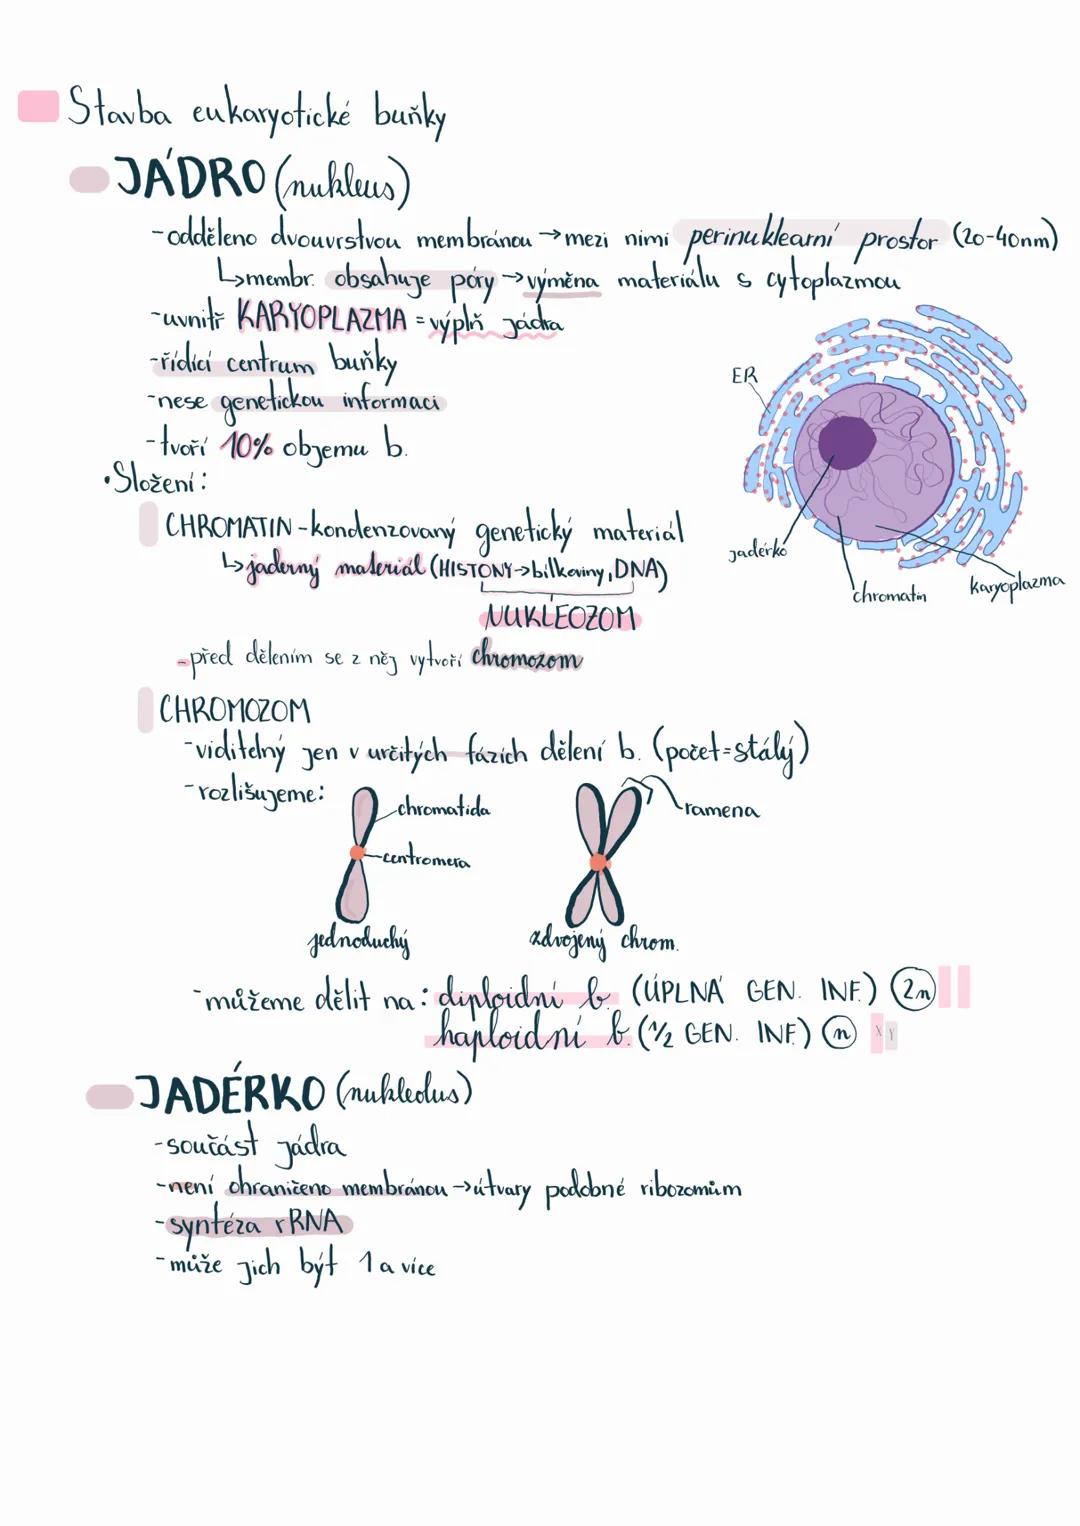 Stavba eukaryotické buňky
JÁDRO (nukleus)
-odděleno dvouvrstvou membránou → mezi nimi perinuklearní prostor (20-40nm)
↳membr. obsahuje póry → výměna materiálu s cytoplazmou
-uvnitř KARYOPLAZMA = výplň jádra
-řídící centrum buňky
-nese genetickou informaci
-tvoří 10% objemu b.
ER
jadérko
chromatin
karyoplazma
•Složení:
CHROMATIN - kondenzovaný genetický materiál
↳jaderný materiál (HISTONY→bílkoviny, DNA)
NUKLEOZOM
-před dělením se z něj vytvoří chromozom
CHROMOZOM
-viditelný jen v určitých fázích dělení b. (počet=stálý)
-rozlišujeme:
chromatida
centromera
ramena
jednoduchý
zdvojený chrom.
-můžeme dělit na: diploidní b. (ÚPLNÁ GEN. INF.) 2n
haploidní b. (1/2 GEN. INF.) n X Y
JADÉRKO (nukleolus)
-součást jádra
-není ohraničeno membránou → útvary podobné ribozomům
-syntéza rRNA
-může jich být 1 a více